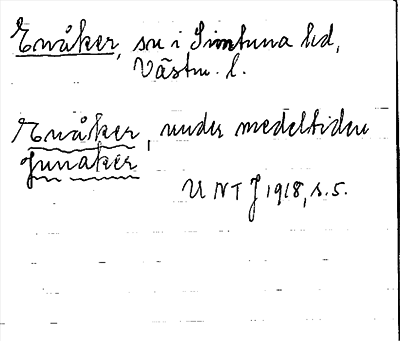 Enåker, sn i Simtuna hd,
Västm. l.
Enåker, under medeltiden
Junaker
UNTJ 1918, s. 5.